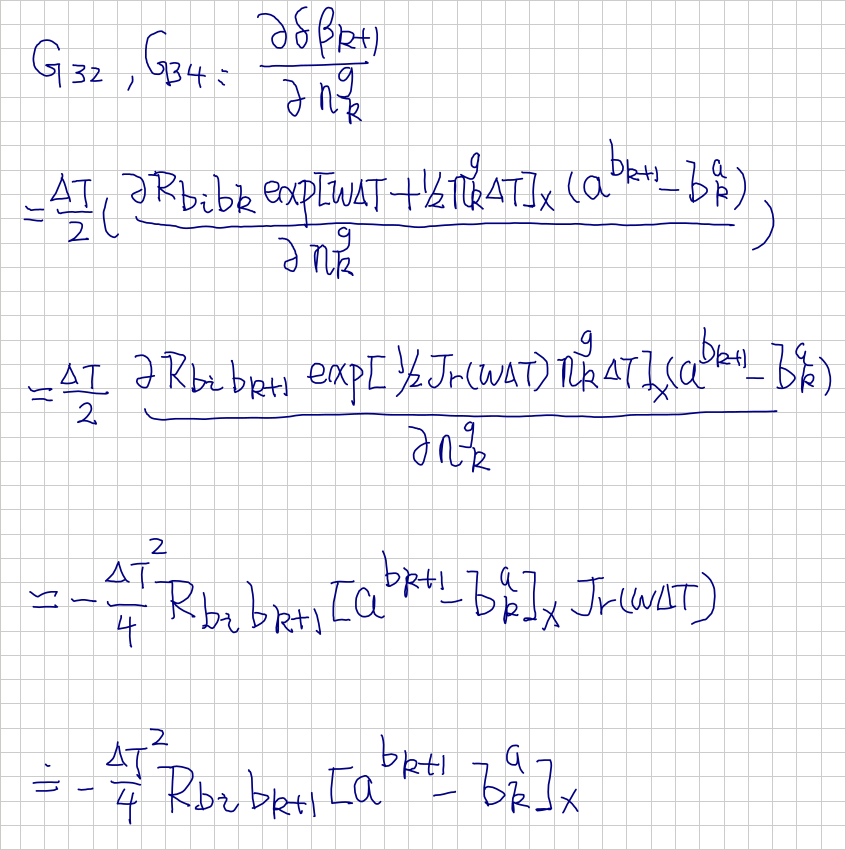 G₃₂, G₃₄: ∂δβₖ₊₁ / ∂nₖᵍ
= ΔT/2 ( ∂R_{b_i b_k} exp[wΔT + ½ nₖᵍ ΔT]ₓ (a^{b_{k+1}} - bₖᵃ) / ∂nₖᵍ )
= ΔT/2 ∂R_{b_i b_{k+1}} exp[½ Jr(wΔT) nₖᵍ ΔT]ₓ (a^{b_{k+1}} - bₖᵃ) / ∂nₖᵍ
= - ΔT²/4 R_{b_i b_{k+1}} [a^{b_{k+1}} - bₖᵃ]ₓ Jr(wΔT)
≐ - ΔT²/4 R_{b_i b_{k+1}} [a^{b_{k+1}} - bₖᵃ]ₓ